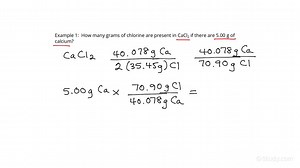 Example 1: How many grams of chlorine are present in CaCl₂ if there are 5.00 g of
calcium?
CaCl₂ 40.078g Ca / 2(35.45g)Cl 40.078g Ca / 70.90g Cl
5.00g Ca × 70.90g Cl / 40.078g Ca =